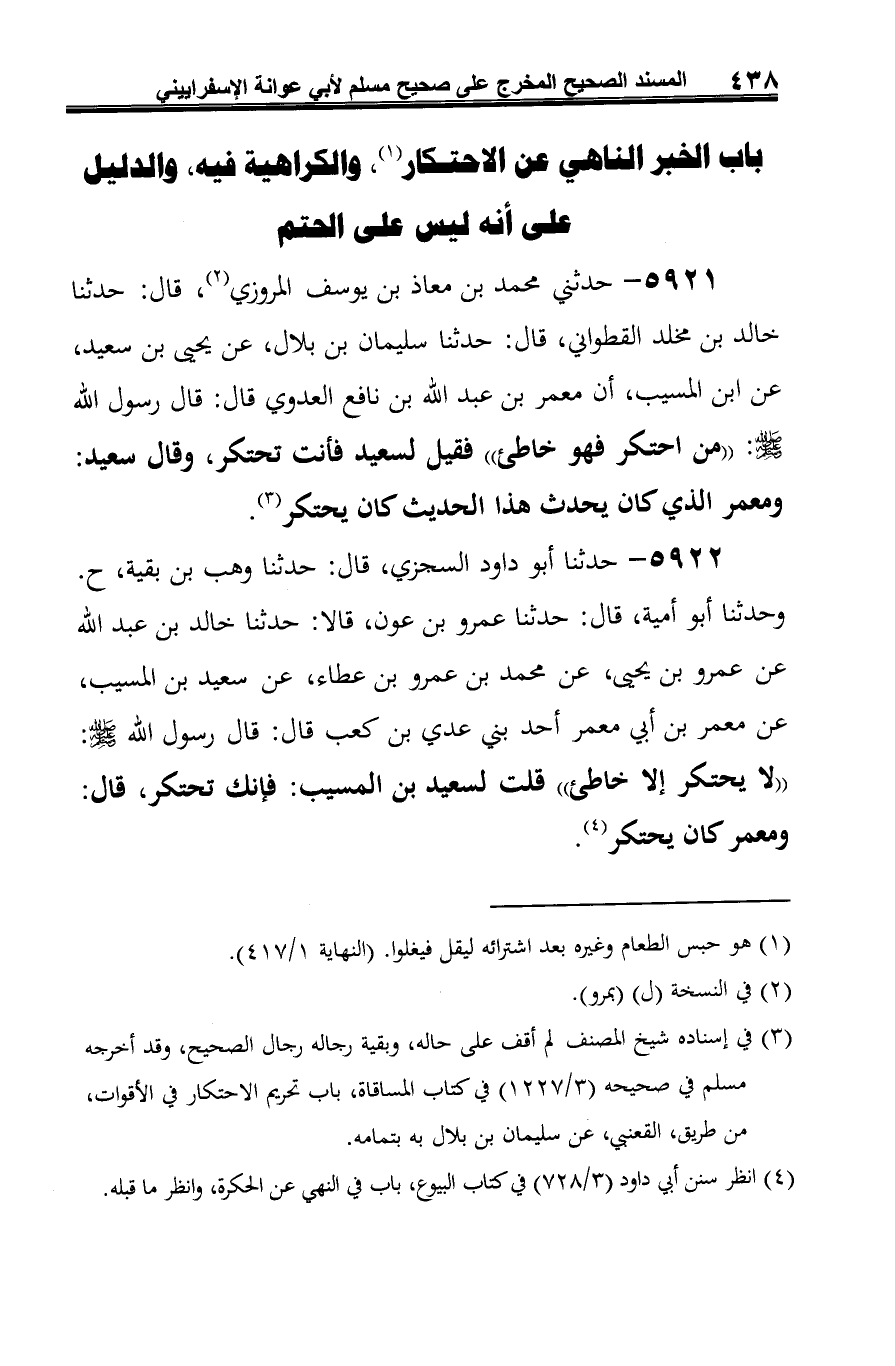 ٤٣٨ المسند الصحيح المخرج على صحيح مسلم لأبي عوانة الإسفراييني
باب الخبر الناهي عن الاحتكار(١)، والكراهية فيه، والدليل
على أنه ليس على الحتم
٥٩٢١- حدثني محمد بن معاذ بن يوسف المروزي(٢)، قال: حدثنا
خالد بن مخلد القطواني، قال: حدثنا سليمان بن بلال، عن يحيى بن سعيد،
عن ابن المسيب، أن معمر بن عبد الله بن نافع العدوي قال: قال رسول الله
ﷺ: ((من احتكر فهو خاطئ)) فقيل لسعيد فأنت تحتكر، وقال سعيد:
ومعمر الذي كان يحدث هذا الحديث كان يحتكر(٣).
٥٩٢٢- حدثنا أبو داود السجزي، قال: حدثنا وهب بن بقية، ح.
وحدثنا أبو أمية، قال: حدثنا عمرو بن عون، قالا: حدثنا خالد بن عبد الله
عن عمرو بن يحيى، عن محمد بن عمرو بن عطاء، عن سعيد بن المسيب،
عن معمر بن أبي معمر أحد بني عدي بن كعب قال: قال رسول الله ﷺ:
((لا يحتكر إلا خاطئ)) قلت لسعيد بن المسيب: فإنك تحتكر، قال:
ومعمر كان يحتكر(٤).
(١) هو حبس الطعام وغيره بعد اشترائه ليقل فيغلوا. (النهاية ٤١٧/١).
(٢) في النسخة (ل) (بمرو).
(٣) في إسناده شيخ المصنف لم أقف على حاله، وبقية رجاله رجال الصحيح، وقد أخرجه
مسلم في صحيحه (١٢٢٧/٣) في كتاب المساقاة، باب تحريم الاحتكار في الأقوات،
من طريق، القعنبي، عن سليمان بن بلال به بتمامه.
(٤) انظر سنن أبي داود (٧٢٨/٣) في كتاب البيوع، باب في النهي عن الحكرة، وانظر ما قبله.